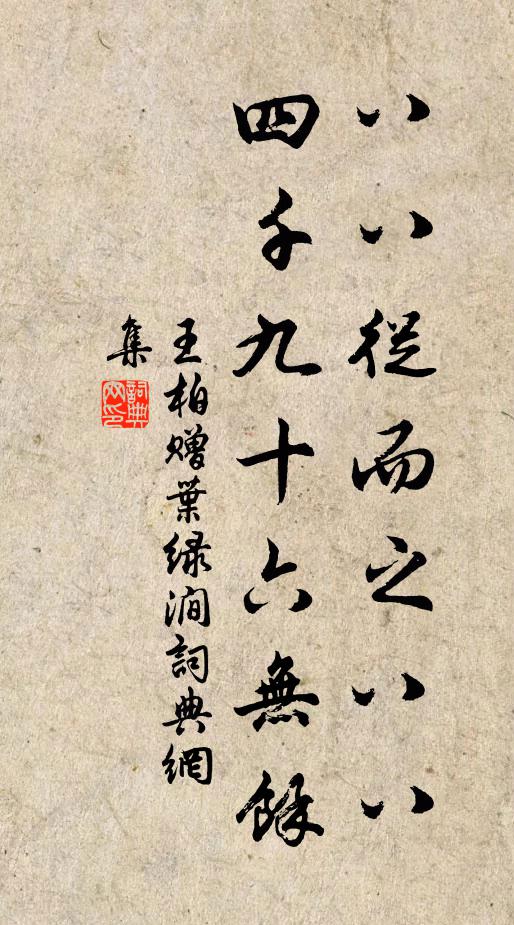 八八從而之八八
四千九十六無餘
王柏贈葉綠澗詞典網
集
詞典網印